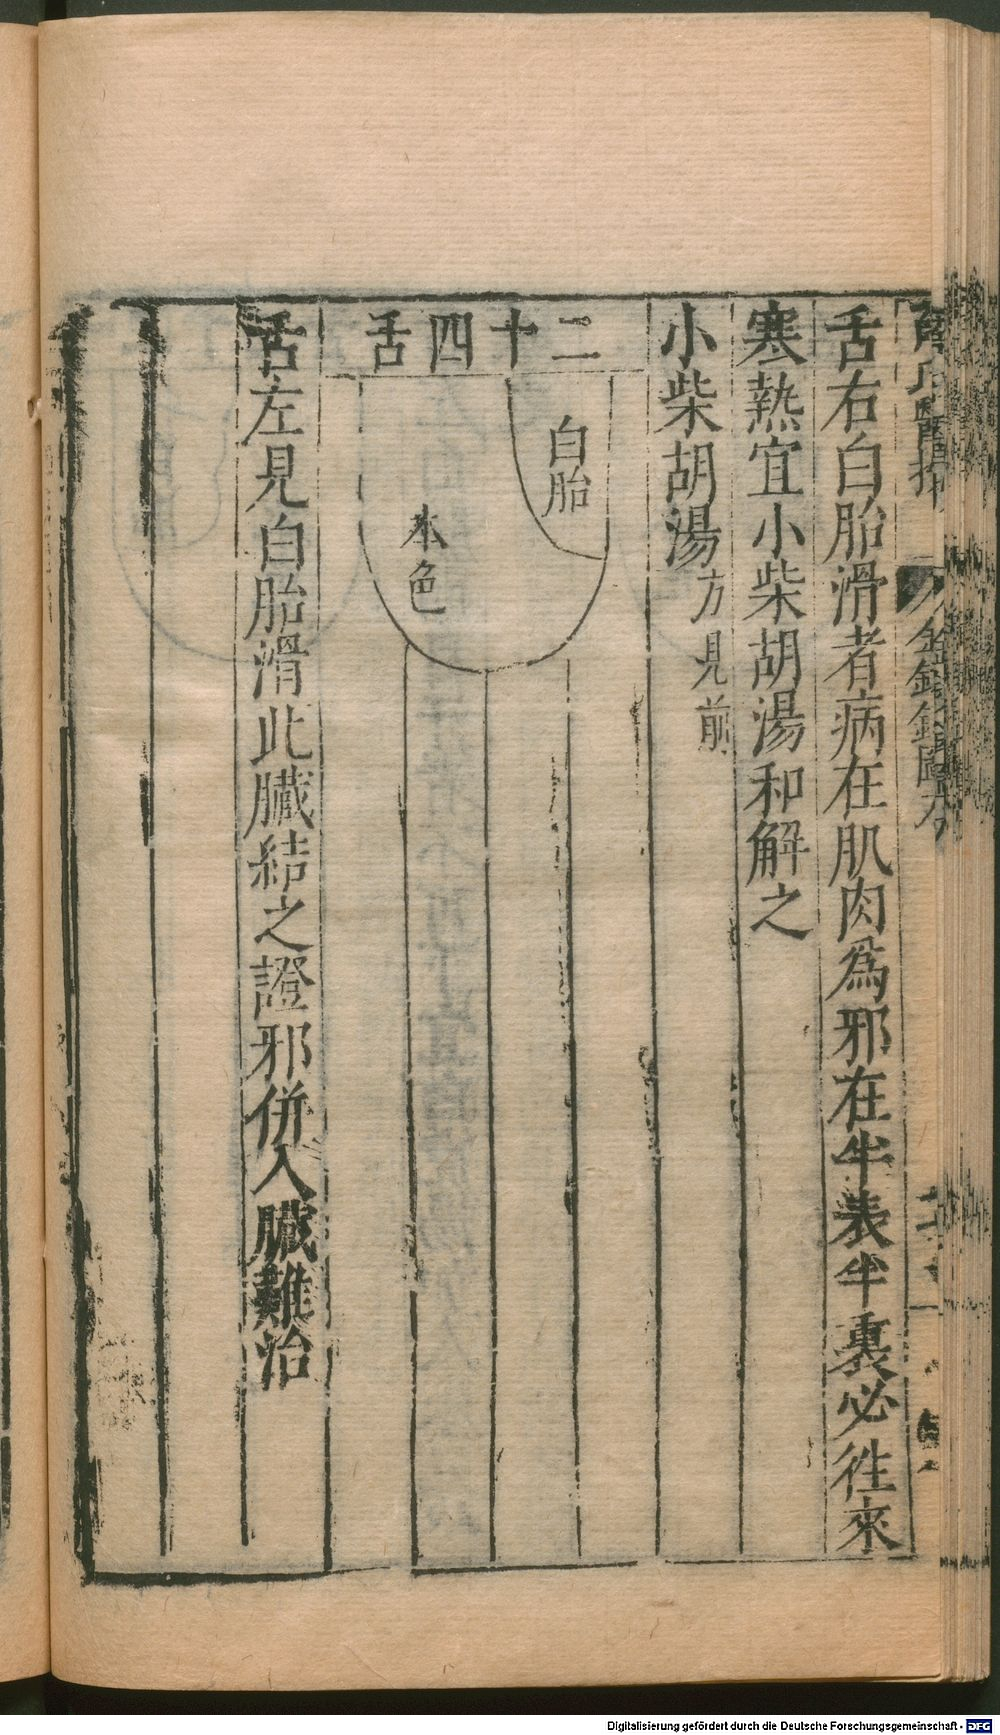 舌右白胎滑者病在肌肉為邪在半表半裏必徃來
寒熱宜小柴胡湯和解之
小柴胡湯方見前
二十四舌
白胎
本色
舌左見白胎滑此臟結之證邪併入臟難治
Digitalisierung gefördert durch die Deutsche Forschungsgemeinschaft - DFG